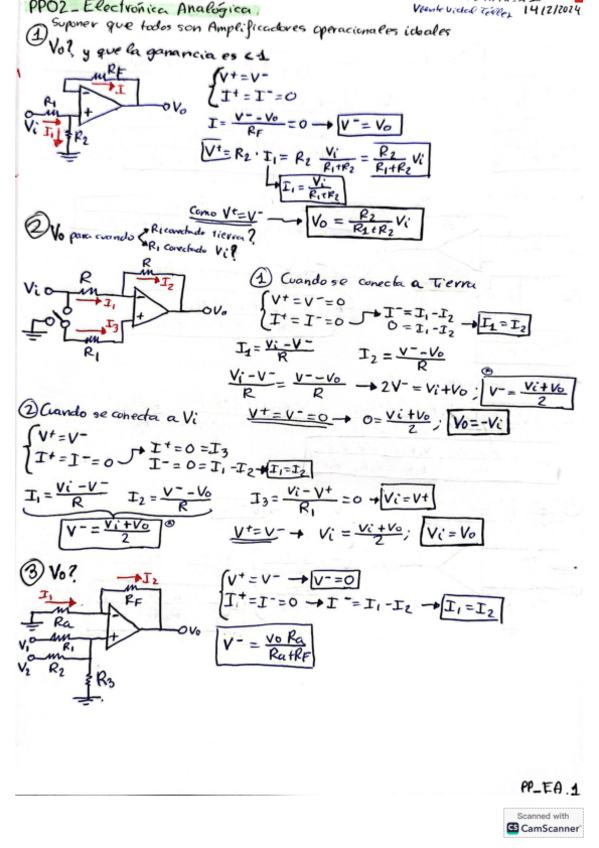 PP02_Electrónica Analógica.
Vicente Vidal Téllez 14/2/2024
① Suponer que todos son Amplificadores operacionales ideales
Vo? y que la ganancia es <1
RF
I
R1
Vi I1
R2
Vo
V+ = V-
I+ = I- = 0
I = (V- - Vo)/RF = 0 → V- = Vo
V+ = R2 · I1 = R2 Vi/(R1+R2) = R2/(R1+R2) Vi
I1 = Vi/(R1+R2)
Como V+ = V- → Vo = R2/(R1+R2) Vi
② Vo para cuando R1 conectado tierra?
R1 conectado Vi?
R
I2
Vi R
I1
I3
R1
Vo
① Cuando se conecta a Tierra
V+ = V- = 0
I+ = I- = 0 → I- = I1 - I2
0 = I1 - I2 → I1 = I2
I1 = (Vi - V-)/R I2 = (V- - Vo)/R
(Vi - V-)/R = (V- - Vo)/R → 2V- = Vi + Vo ; V- = (Vi + Vo)/2
V+ = V- = 0 → 0 = (Vi + Vo)/2 ; Vo = -Vi
② Cuando se conecta a Vi
V+ = V-
I+ = I- = 0 → I+ = 0 = I3
I- = 0 = I1 - I2 → I1 = I2
I1 = (Vi - V-)/R I2 = (V- - Vo)/R I3 = (Vi - V+)/R1 = 0 → Vi = V+
V- = (Vi + Vo)/2
V+ = V- → Vi = (Vi + Vo)/2 ; Vi = Vo
③ Vo?
I2
RF
I1
Ra
V1 R1
V2 R2
R3
Vo
V+ = V- → V- = 0
I+ = I- = 0 → I- = I1 - I2 → I1 = I2
V- = Vo Ra/(Ra + RF)
PP_EA.1
Scanned with
CS CamScanner